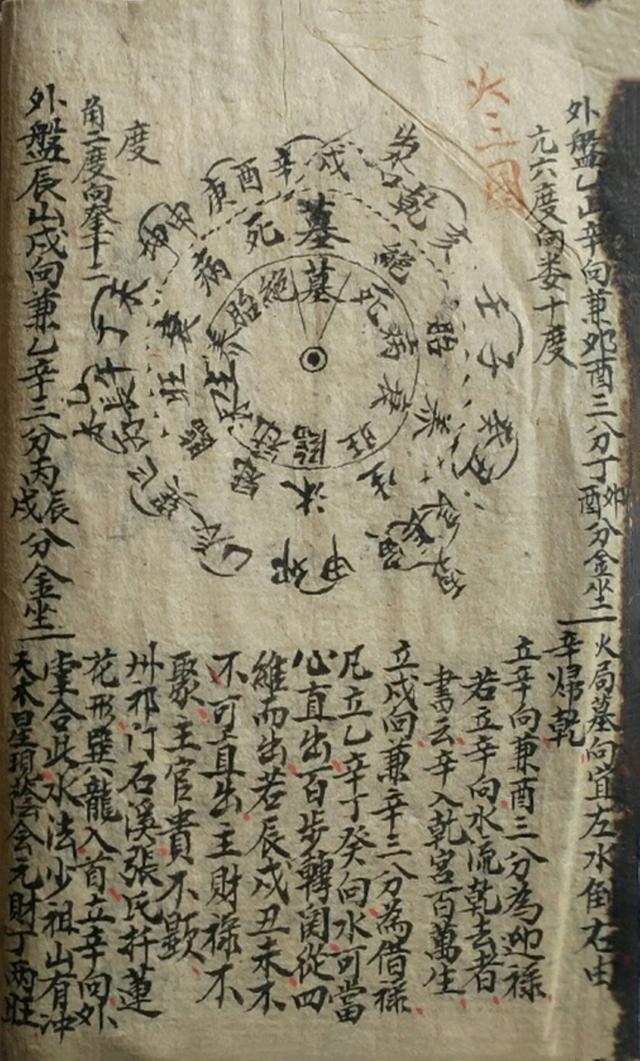 火三圖
外盤乙山辛向兼卯酉三分丁卯酉分金坐
亢六度向娄十度
火局墓向宜左水倒右由
辛帰乾
立辛向兼酉三分為迎禄
若立辛向水流乾去者
書云辛入乾宮百萬生
立戍向兼辛三分為借禄
凡立乙辛丁癸向水可當
心直出百步轉関從四
維而出若辰戍丑未不
不可直出主財禄不
聚主官貴不顕
州邪门石溪張氏扦蓮
花形巽龍入首立辛向外
堂合此水法少祖山有冲
天木星現 会元財丁两旺
墓
死
病
衰
旺
臨
絕
胎
养
墓
絕
胎
养
生
臨
旺
衰
病
死
戍
辛
酉
庚
申
乾
亥
壬
子
癸
丑
寅
甲
卯
乙
辰
巽
巳
丙
午
丁
未
度
角二度向奎十二
外盤辰山戍向兼乙辛三分丙辰戍分金坐